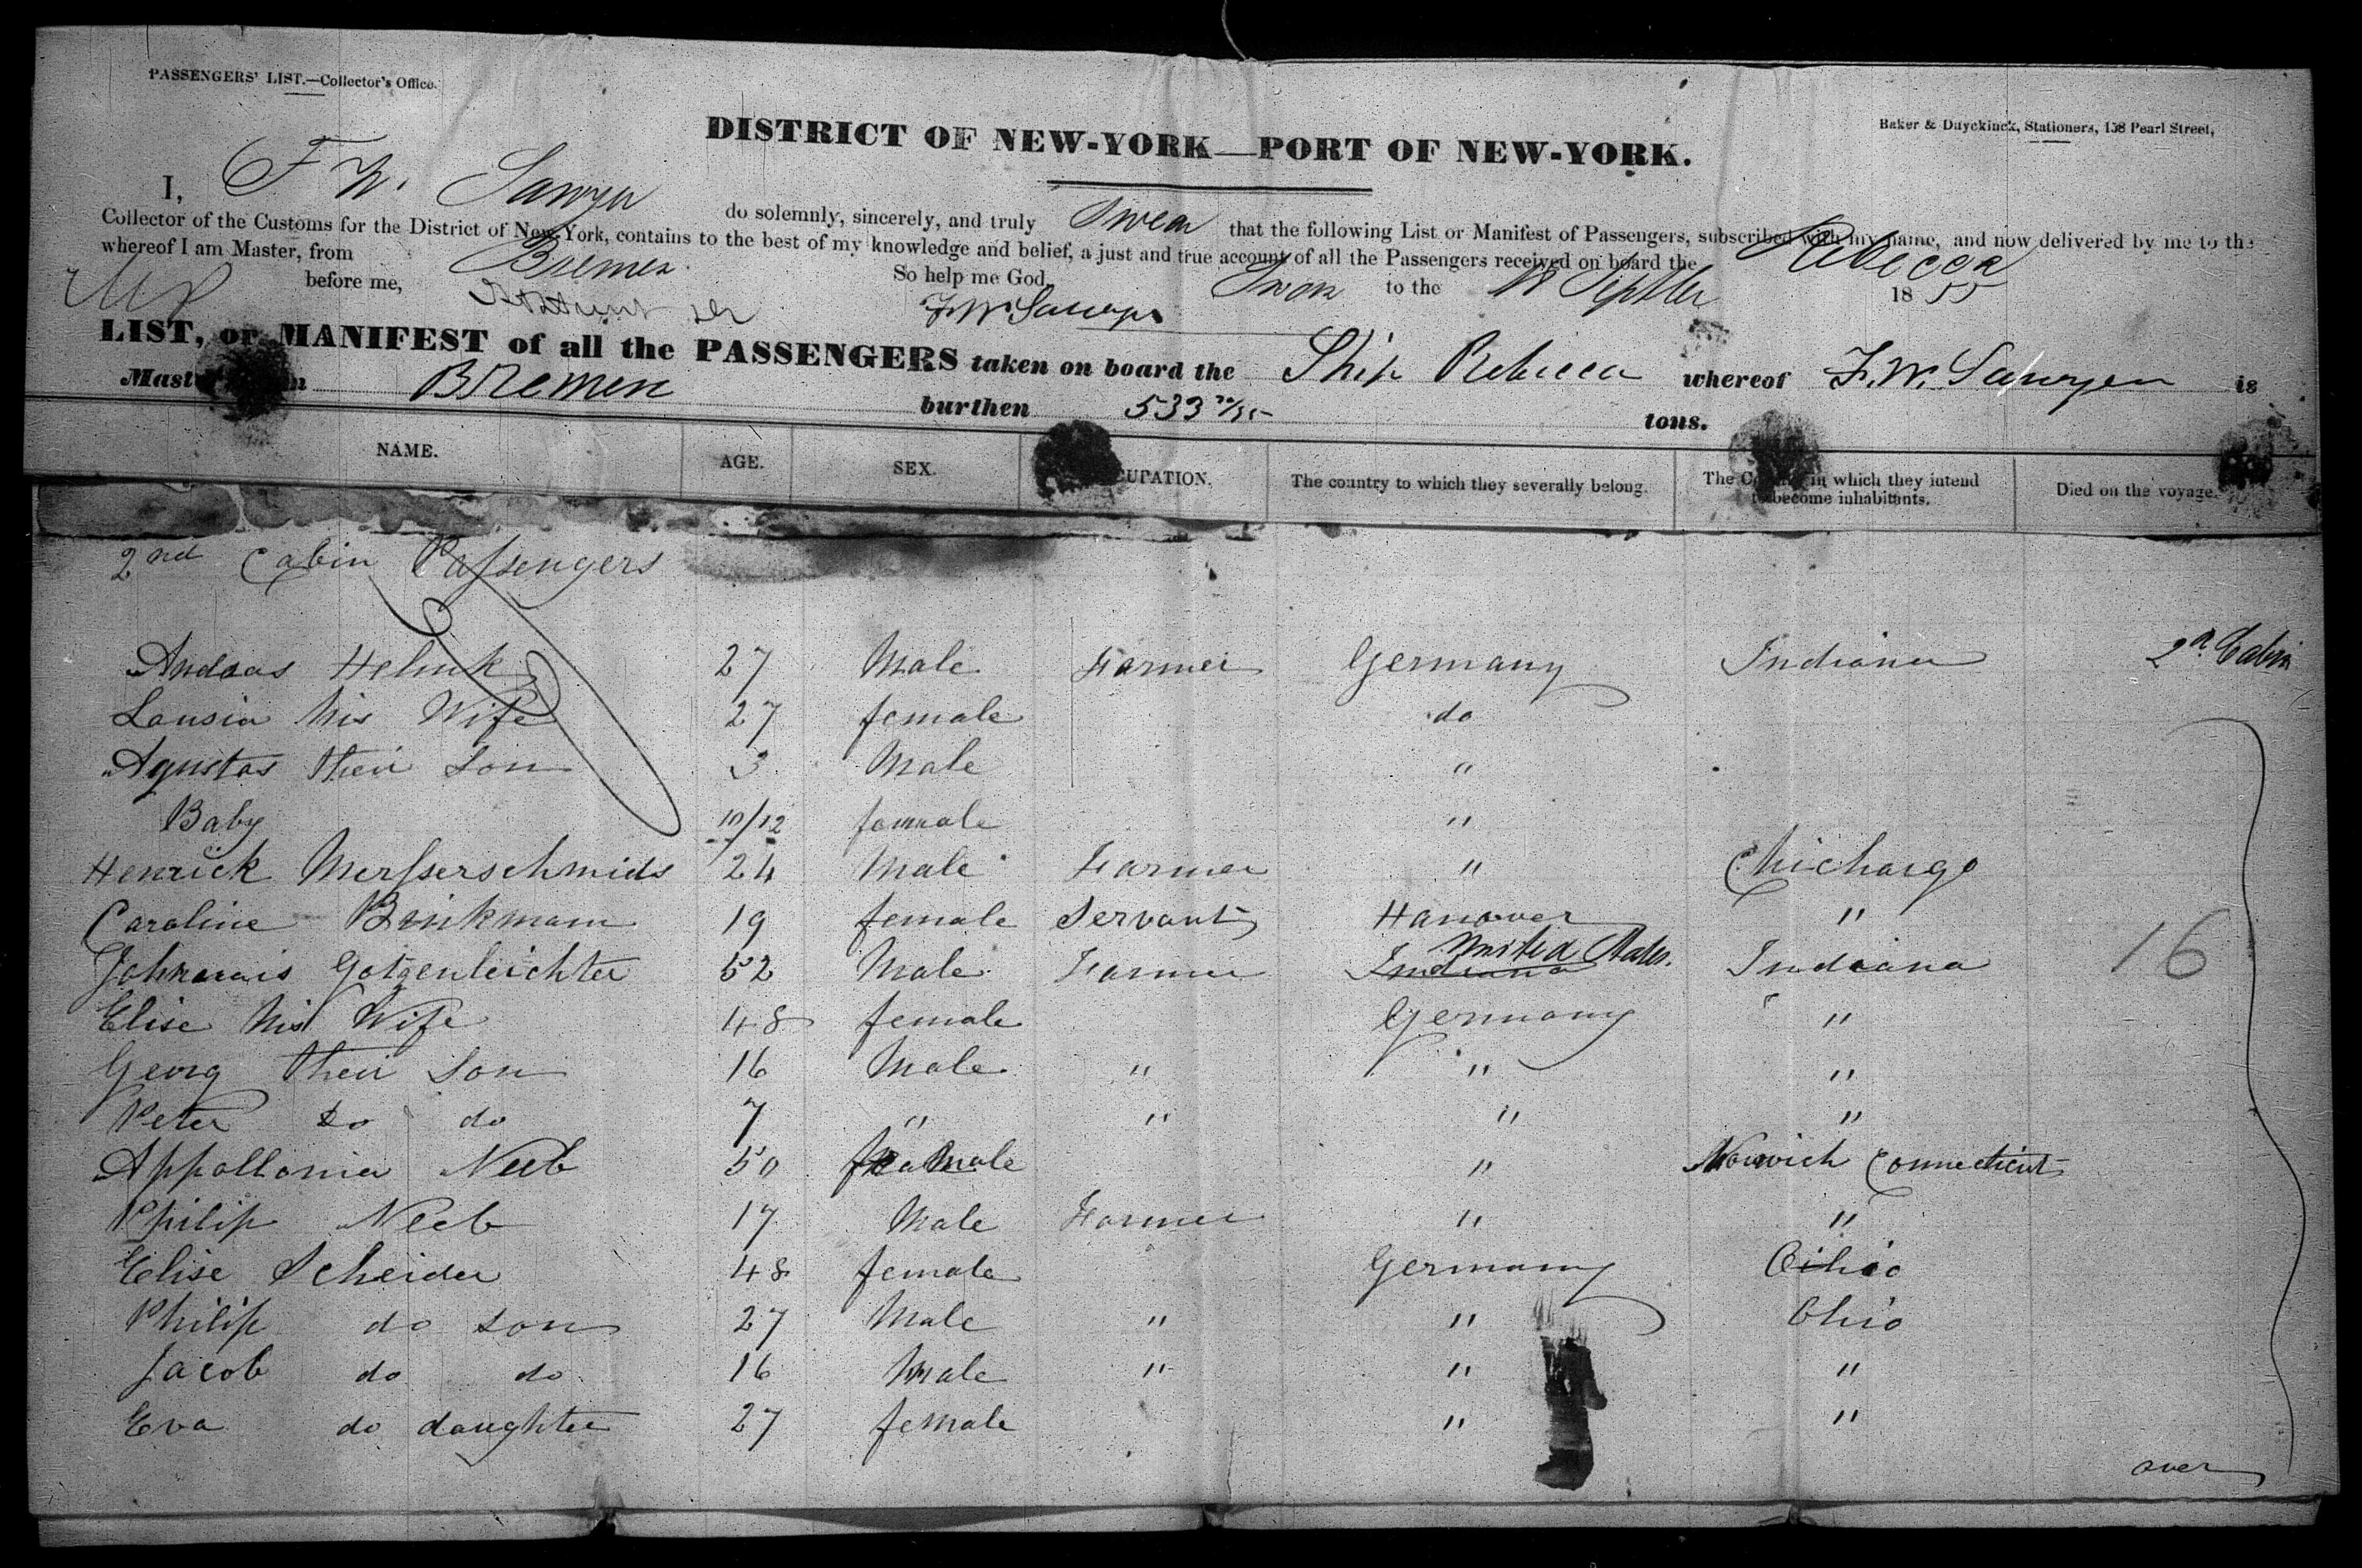 PASSENGERS' LIST.—Collector's Office.
Baker & Duyckinck, Stationers, 158 Pearl Street,
DISTRICT OF NEW-YORK—PORT OF NEW-YORK.
I, F W. Sawyer do solemnly, sincerely, and truly Swear that the following List or Manifest of Passengers, subscribed with my name, and now delivered by me to the
Collector of the Customs for the District of New-York, contains to the best of my knowledge and belief, a just and true account of all the Passengers received on board the Rebecca
whereof I am Master, from Bremen. So help me God.
before me, F.W. Sawyer Sworn to the 1855
LIST, or MANIFEST of all the PASSENGERS taken on board the Ship Rebecca whereof F. W. Sawyer is
Bremen burthen 533 tons.
NAME. AGE. SEX. The country to which they severally belong. The in which they intend to become inhabitants. Died on the voyage.
2nd Cabin Passengers
Andras Helmk 27 Male Farmer Germany Indiana 2n Cabin
Lousia his Wife 27 female do
Agustas their Son 3 Male "
Baby 10/12 female "
Henrick Messerschmids 24 Male Farmer " Chichargo
Caroline Brinkmann 19 female Servant Hanover "
Gotzenleichter 52 Male Farmer Indiana United States. Indiana 16
Elise his Wife 48 female Germany "
Georg their Son 16 Male " " "
Peter do do 7 " " " "
Appollonia Neeb 50 female " Norwich Connecticut
Philip Neeb 17 Male Farmer " "
Elise Scheider 48 female Germany Oihio
Philip do son 27 Male " " Ohio
Jacob do do 16 Male " " "
Eva do daughter 27 female " "
over